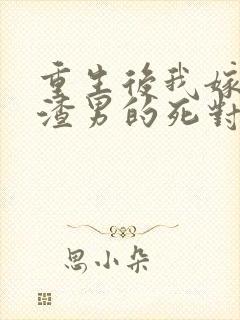 重生後我嫁
渣男的死對
思小朵